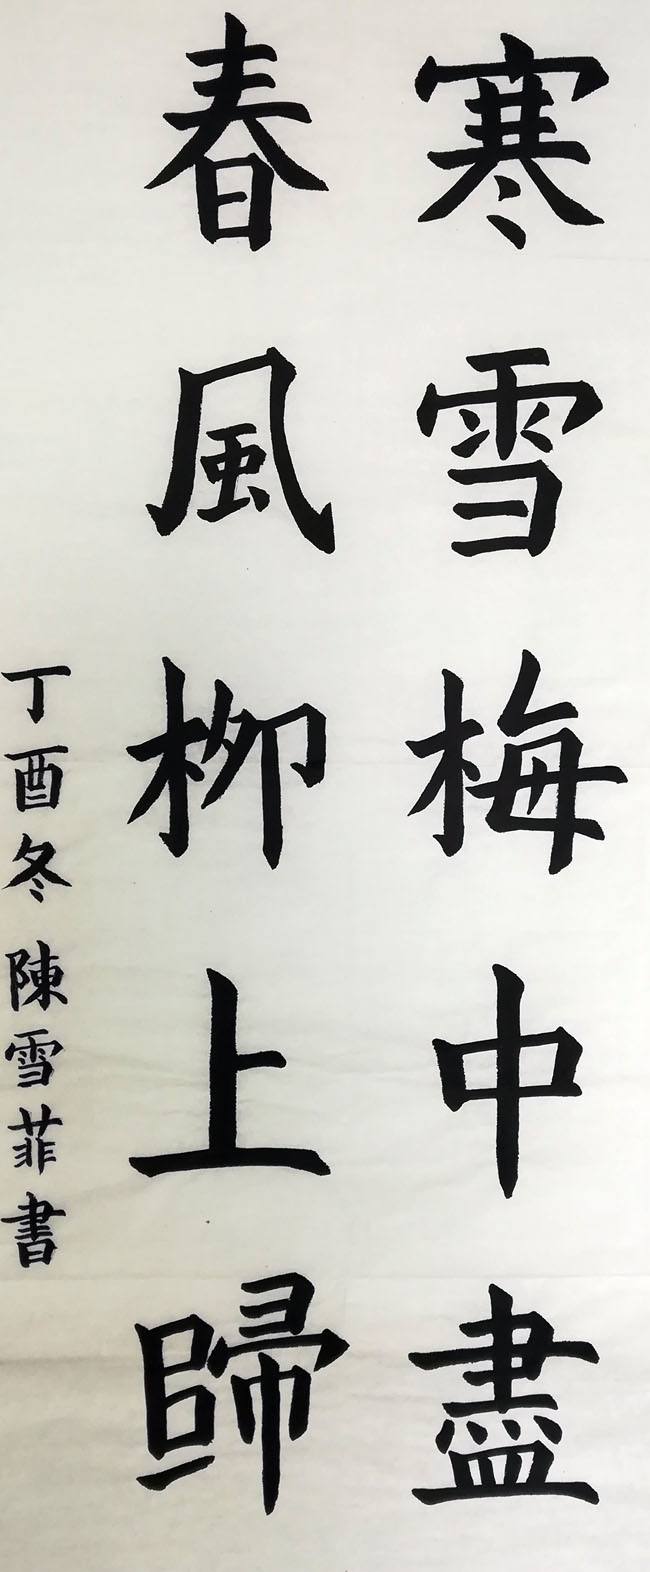 寒雪梅中盡
春風柳上歸
丁酉冬 陳雪菲書